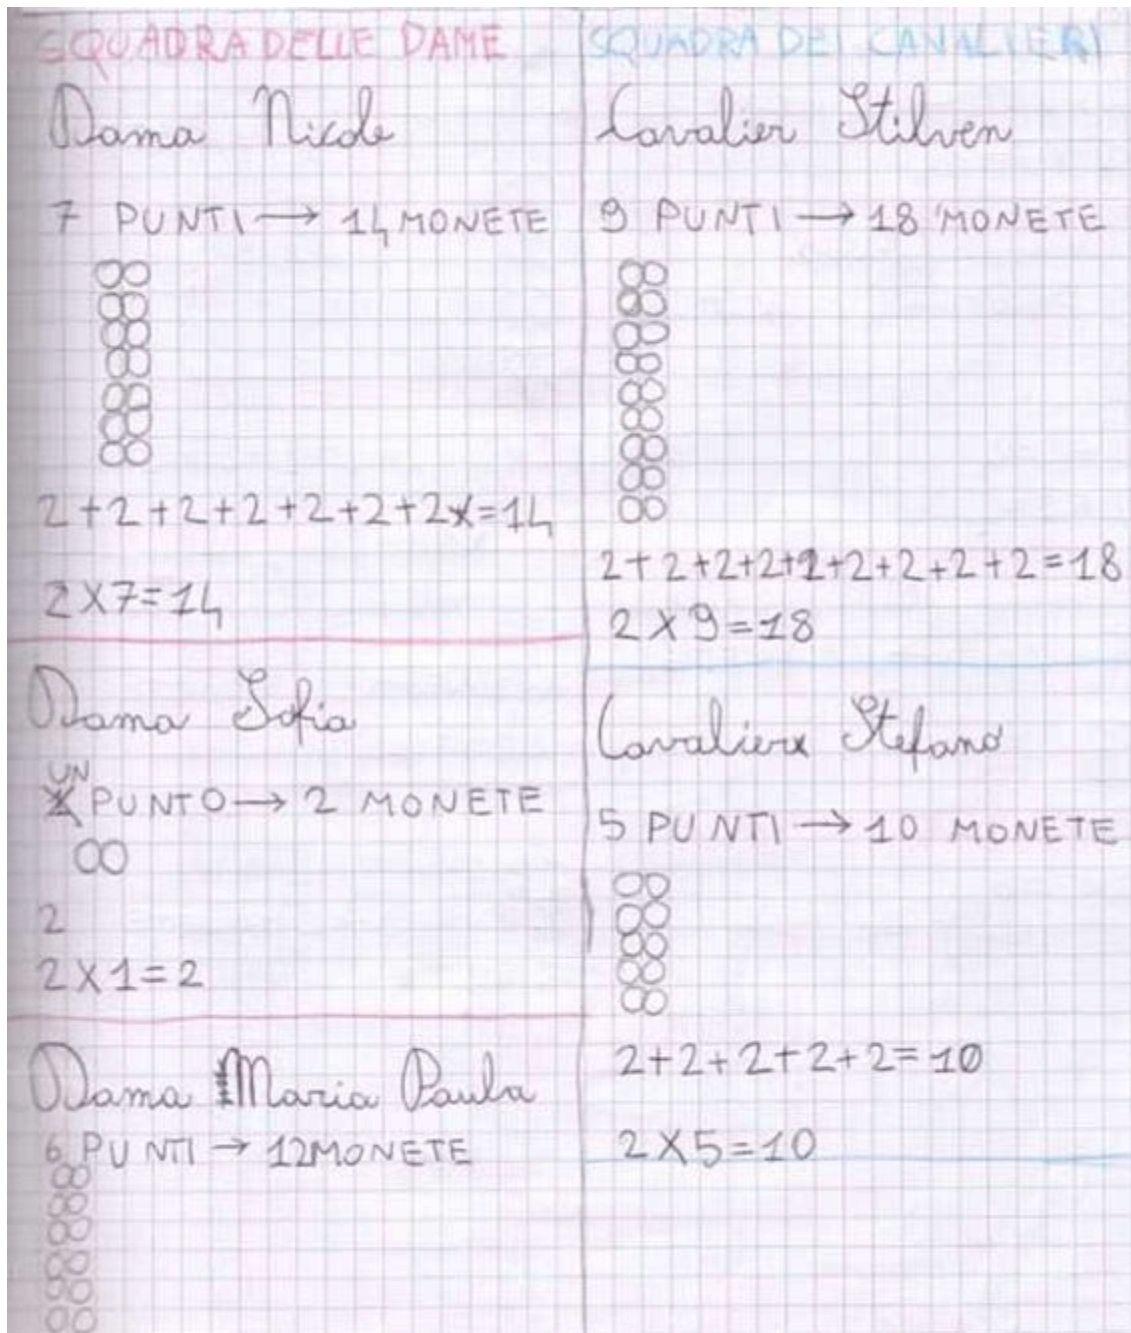 SQUADRA DELLE DAME
Dama Nicole
7 PUNTI → 14 MONETE
2+2+2+2+2+2+2=14
2X7=14
Dama Sofia
UN PUNTO → 2 MONETE
2
2X1=2
Dama Maria Paula
6 PUNTI → 12 MONETE
SQUADRA DEI CAVALIERI
Cavalier Stilven
9 PUNTI → 18 MONETE
2+2+2+2+2+2+2+2+2=18
2X9=18
Cavalier Stefano
5 PUNTI → 10 MONETE
2+2+2+2+2=10
2X5=10